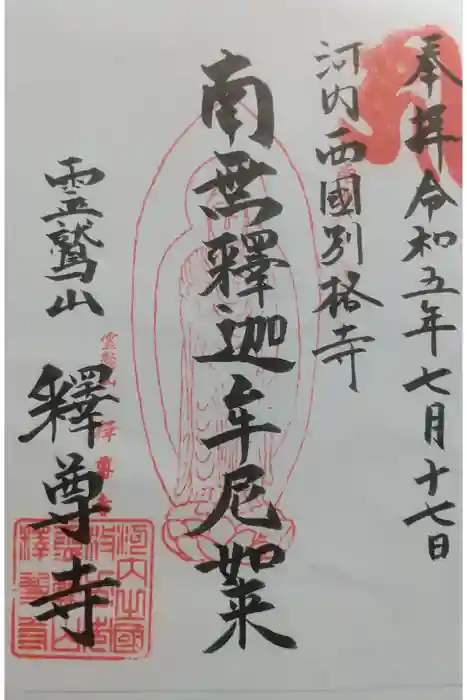 奉拝 令和五年七月十七日
河内西國別格寺
南無釋迦牟尼如来
霊鷲山
釋尊寺
霊鷲山 釋尊寺